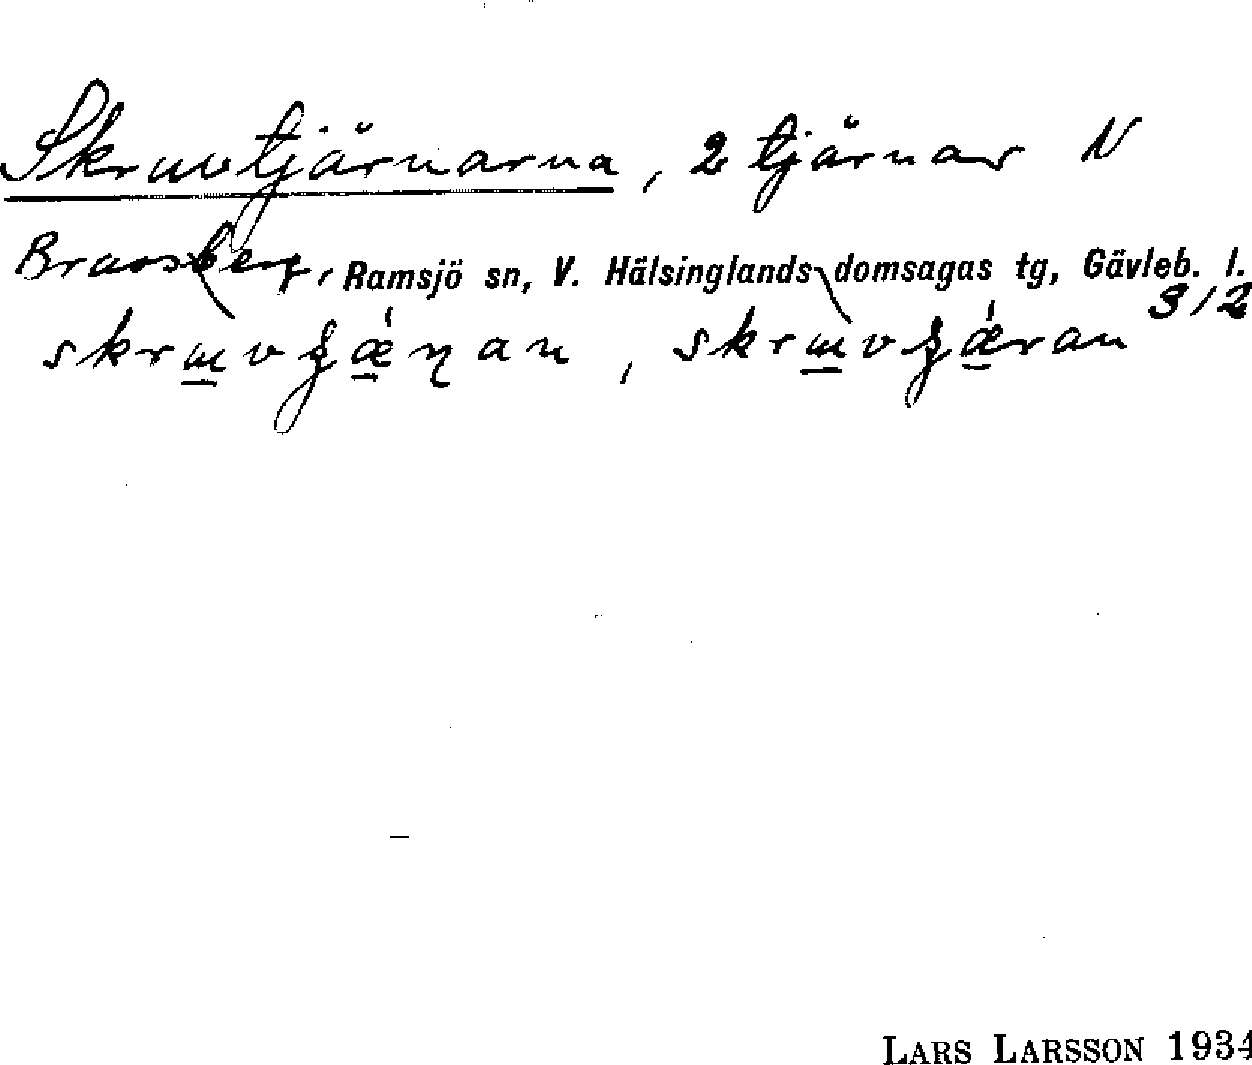 Skruvtjärnarna, 2 tjärnar N
Ramsjö sn, V. Hälsinglands domsagas tg, Gävleb. l.
3/2
LARS LARSSON 1934